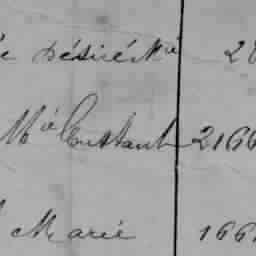 Désiré Mie 2
Mie Constant 2166
Marie 166